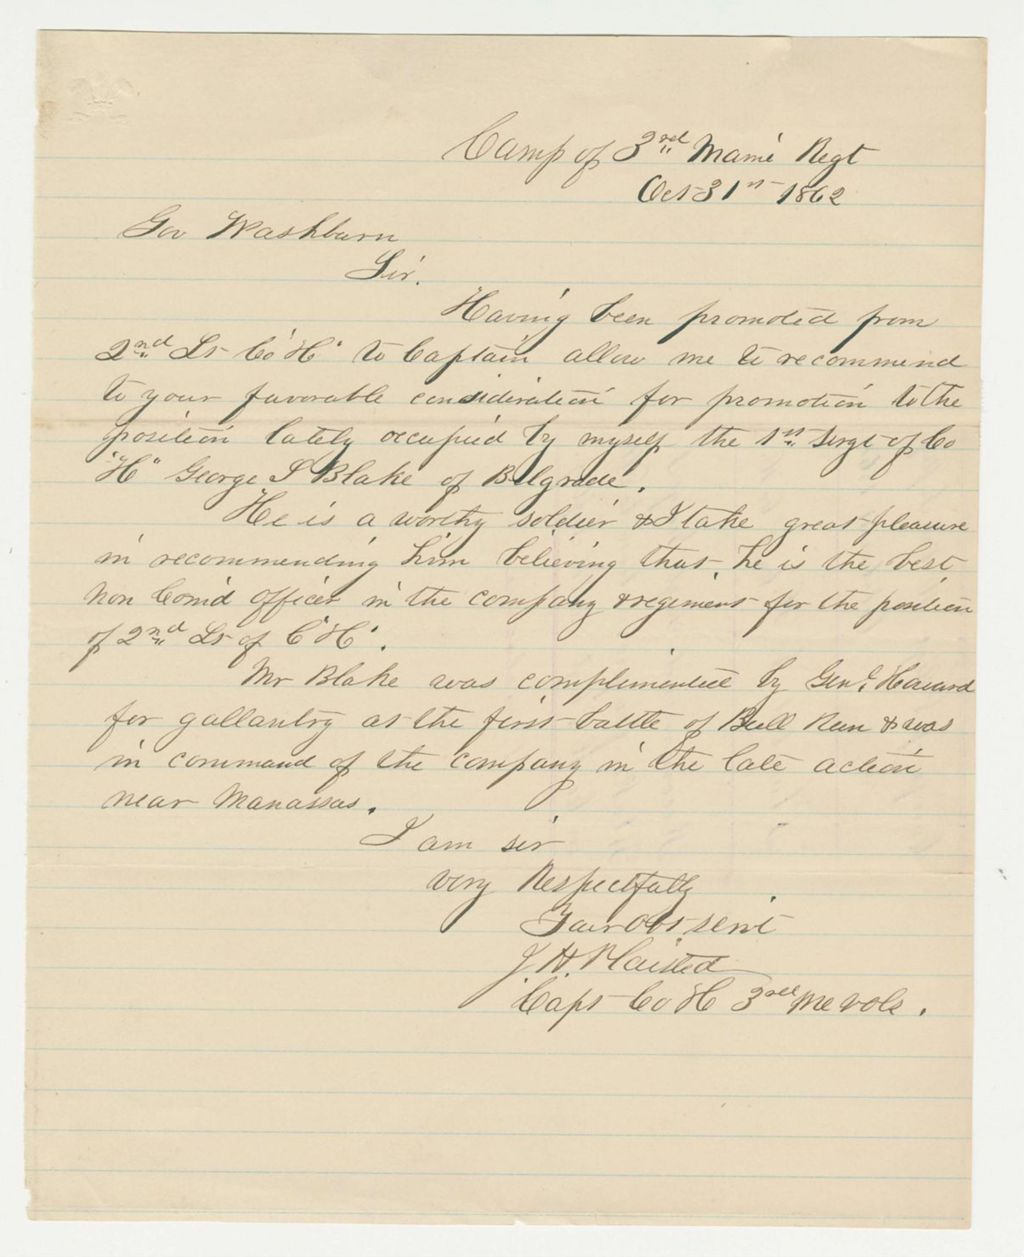 Camp of 3rd Maine Regt
Oct 31st 1862
Gov Washburn
Sir.
Having been promoted from
2nd Lt Co "H" to Captain allow me to recommend
to your favorable consideration for promotion to the
position lately occupied by myself the 1st Sergt of Co
"H" George S Blake of Belgrade.
He is a worthy soldier & I take great pleasure
in recommending him believing that he is the best
Non Com'd Officer in the company & regiment for the position
of 2nd Lt of C "H".
Mr Blake was complimented by Genl Howard
for gallantry at the first battle of Bull Run & was
in command of the company in the late action
near Manassas.
I am sir
very Respectfully
Your obt servt
J. H. Plaisted
Capt Co H 3rd Me Vols.